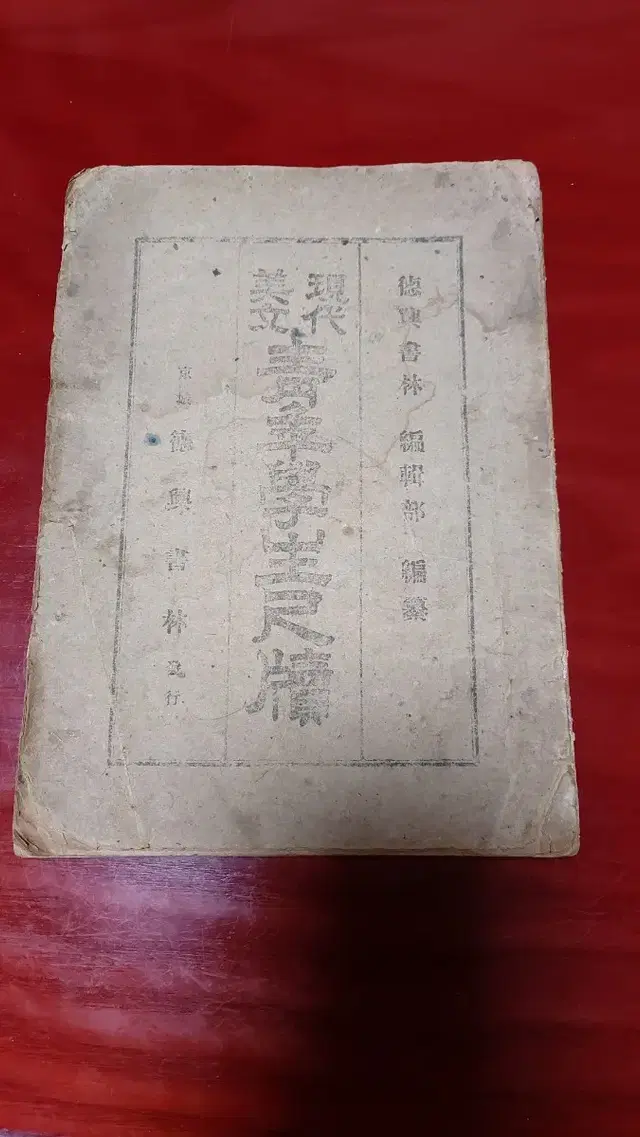 德興書林 編輯部 編纂
現代
美文
青年學生尺牘
京城 德興書林發行